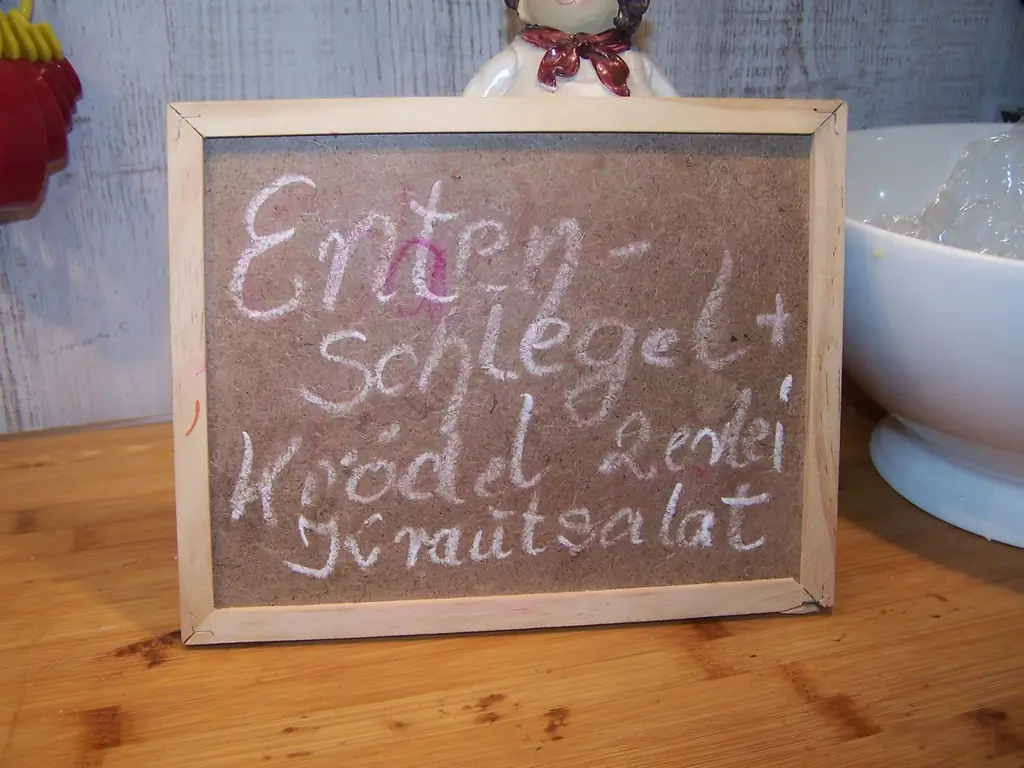 Enten-
Schlegel +
Krödel 2erlei
Krautsalat